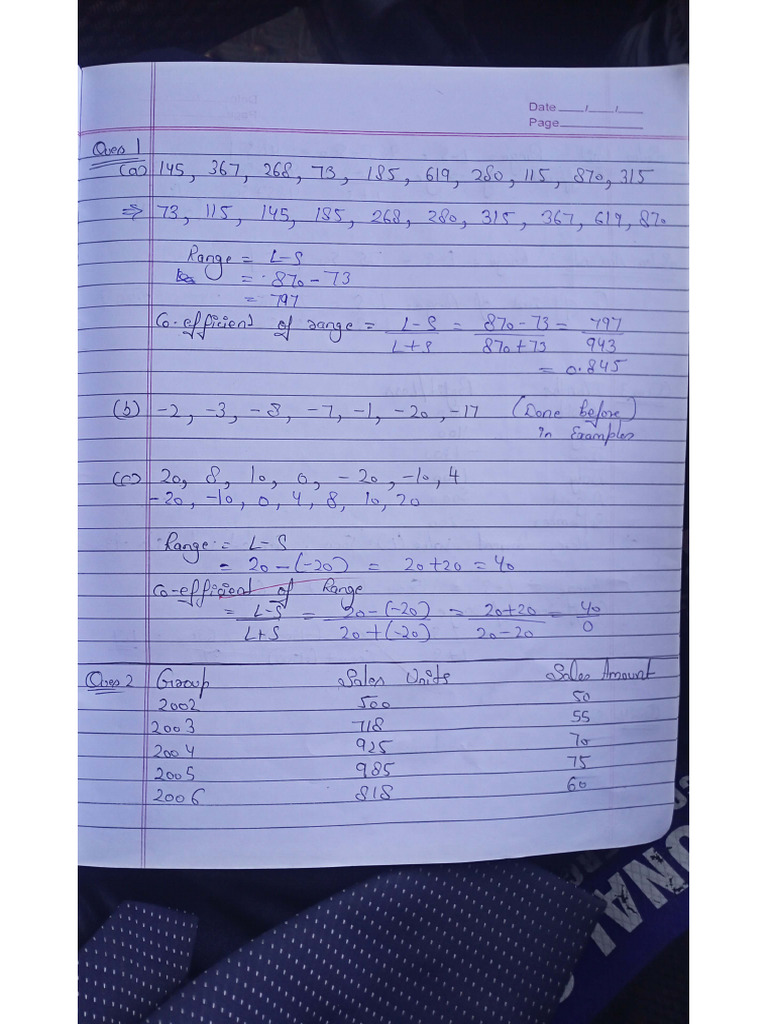 Date ___/___/___
Page
Ques 1
(a) 145, 367, 268, 73, 185, 619, 280, 115, 870, 315
⇒ 73, 115, 145, 185, 268, 280, 315, 367, 619, 870
Range = L-S
= 870-73
= 797
Co-efficient of range = L-S/L+S = 870-73/870+73 = 797/943
= 0.845
(b) -2, -3, -8, -7, -1, -20, -17 (Done before)
in Examples
(c) 20, 8, 10, 0, -20, -10, 4
-20, -10, 0, 4, 8, 10, 20
Range = L-S
= 20-(-20) = 20+20 = 40
Co-efficient of Range
= L-S/L+S = 20-(-20)/20+(-20) = 20+20/20-20 = 40/0
Ques 2 Group Sales Units Sales Amount
2002 500 50
2003 718 55
2004 925 70
2005 985 75
2006 818 60
ONAL